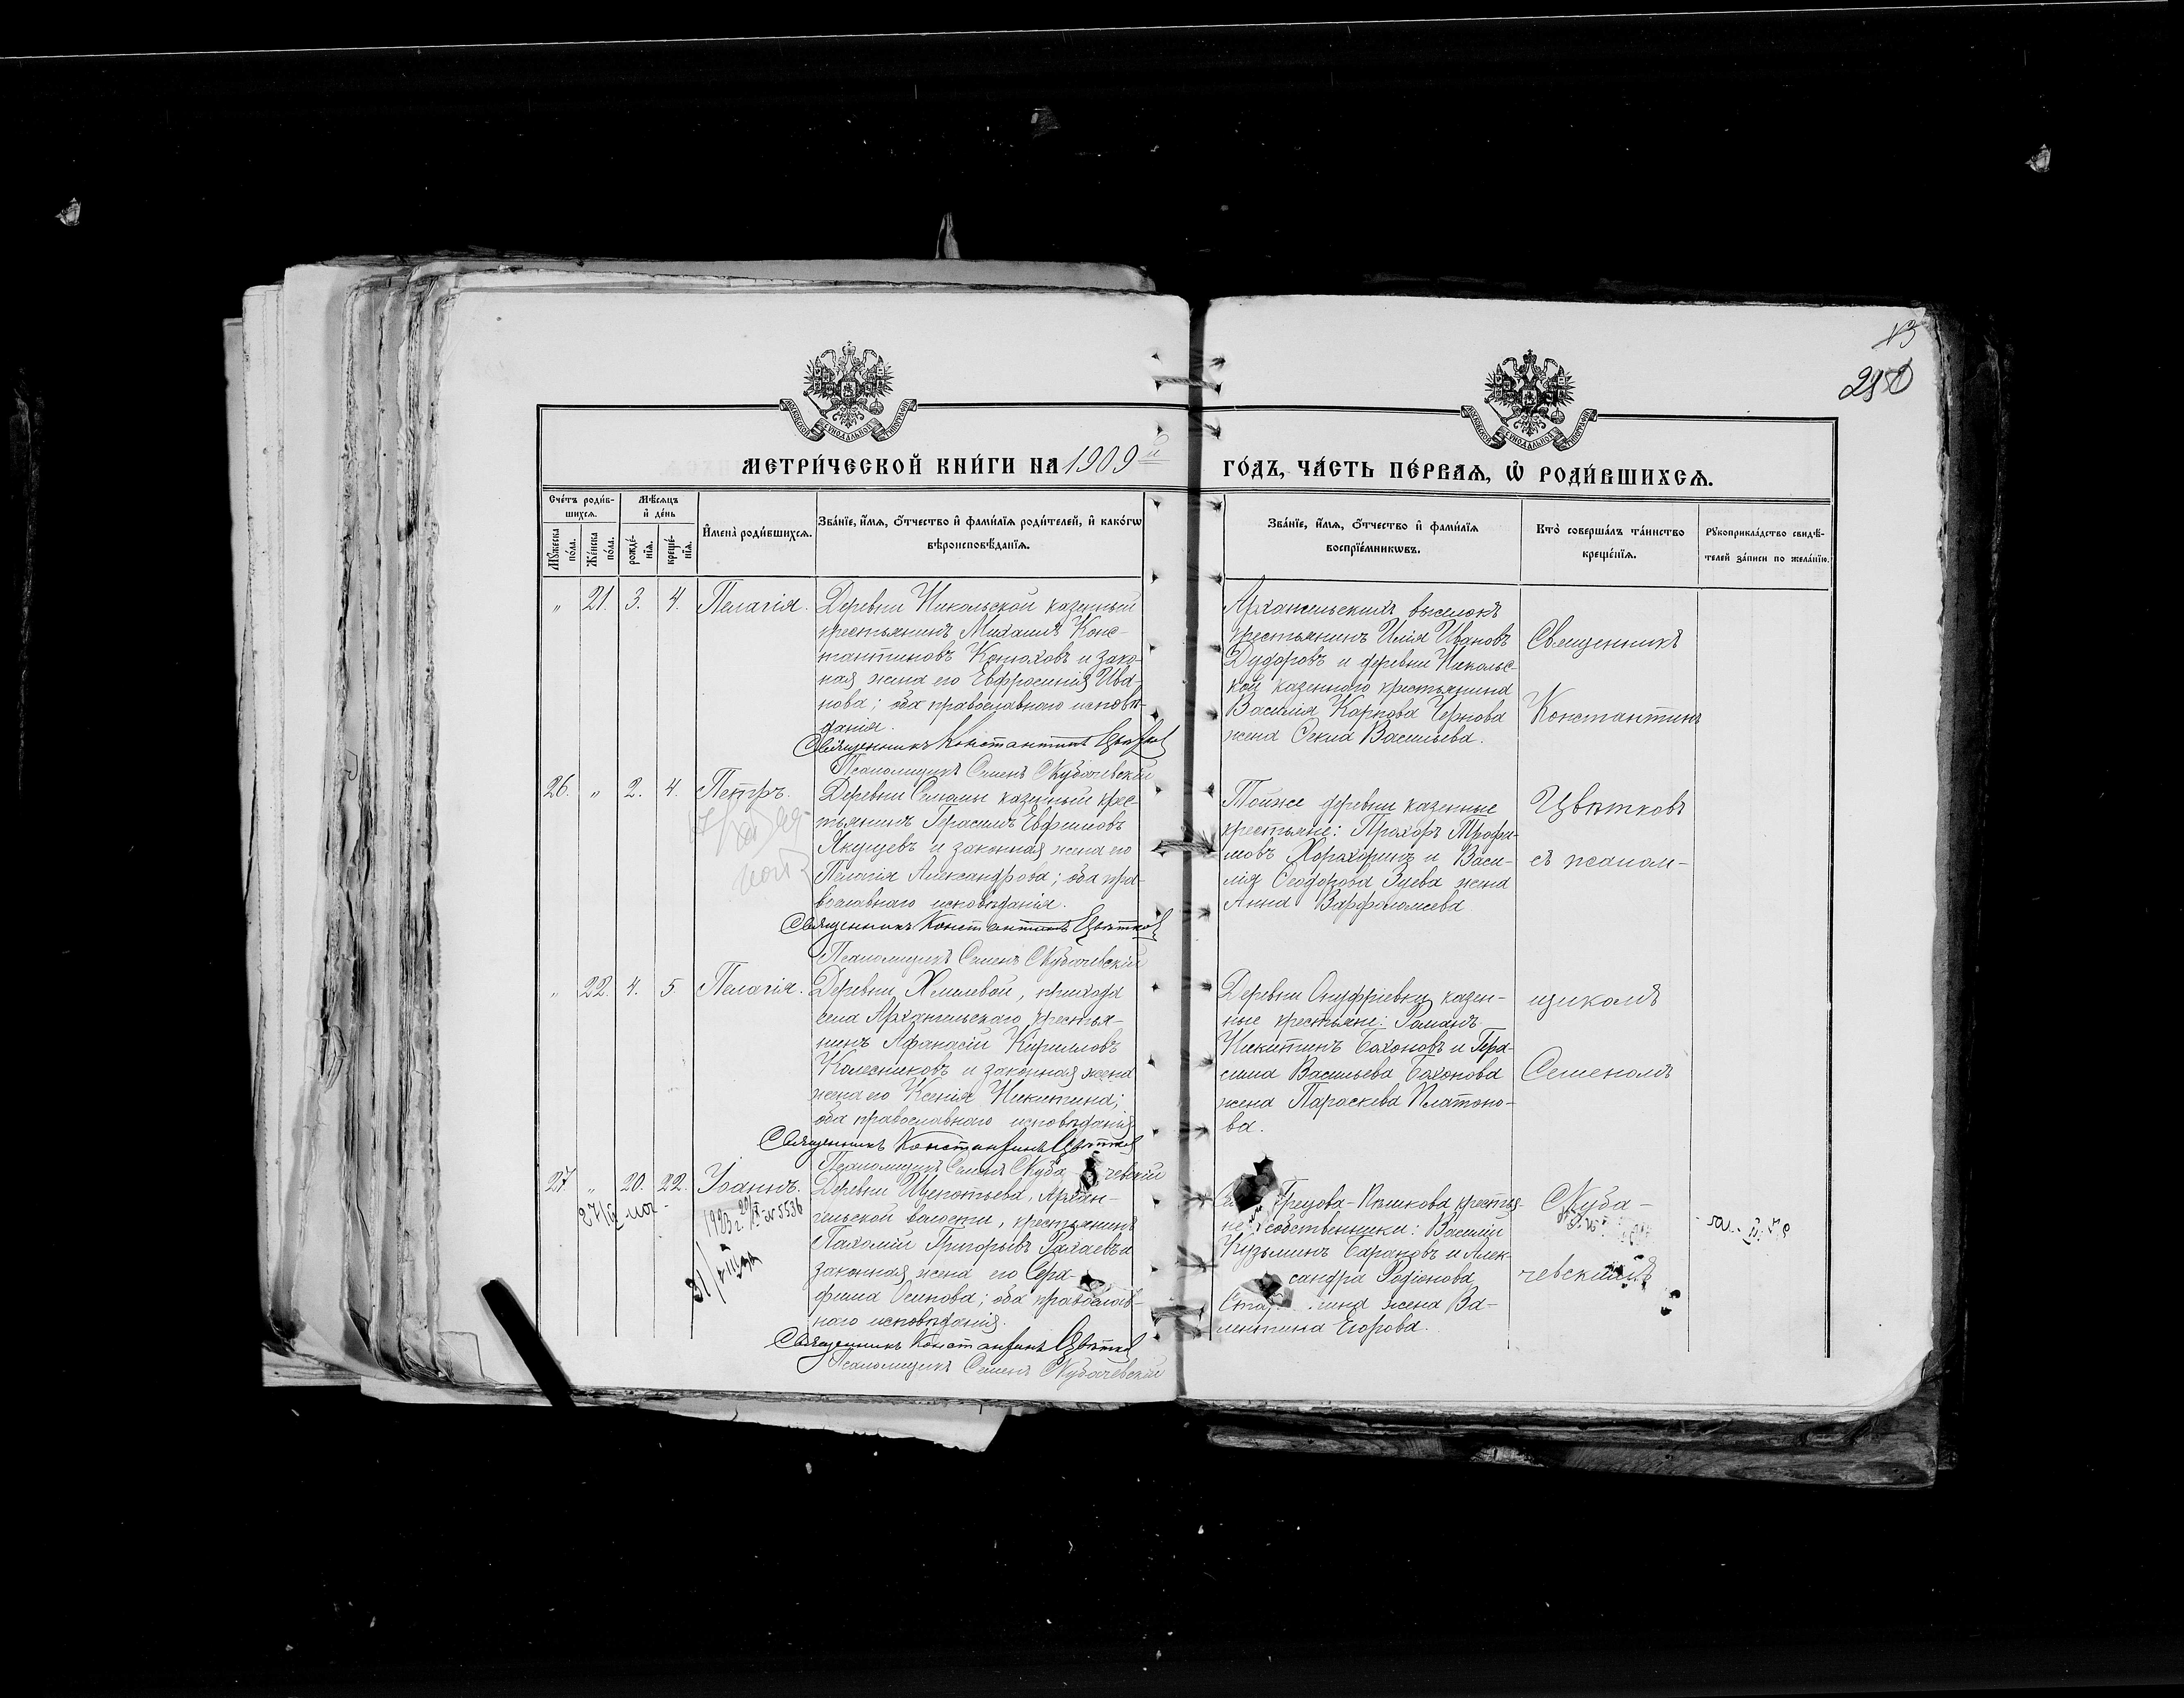 13
280
МОСКОВСКОЙ СѴНОДАЛЬНОЙ ТИПОГРАФІИ
МОСКОВСКОЙ СѴНОДАЛЬНОЙ ТИПОГРАФІИ
МЕТРИ́ЧЕСКОЙ КНИ́ГИ НА 1909 й
ГО́ДЪ, ЧА́СТЬ ПЕ́РВАѦ, Ѡ҆ РОДИ́ВШИХСѦ.
Сче́тъ роди́в-
шихсѧ.
Мꙋ́жеска по́ла.
Же́нска по́ла.
Мѣ́сѧцъ
и҆ де́нь
рожде́-
нїѧ.
креще́-
нїѧ.
И҆мена̀ роди́вшихсѧ.
Зва́нїе, и҆́мѧ, ѻ҆́тчество и҆ фами́лїѧ роди́телей, и҆ како́гѡ
вѣроисповѣ́данїѧ.
Зва́нїе, и҆́мѧ, ѻ҆́тчество и҆ фами́лїѧ
воспрїе́мникѡвъ.
Кто̀ соверша́лъ та́инство
креще́нїѧ.
Рꙋкоприкла́дство свидѣ́-
телей за́писи по жела́нїю.
" 21. 3. 4. Пелагія.
Деревни Никольской казенный
крестьянинъ Михаилъ Конс-
тантиновъ Конюховъ и зако-
ная жена его Евфросинія Ива-
нова; оба православнаго исповѣ-
данія.
Священникъ Константинъ Цвѣтков
Псаломщикъ Семенъ Скубачевскій
Архангельскихъ выселокъ
крестьянинъ Илія Ивановъ
Дудоровъ и деревни Никольс-
кой казеннаго крестьянина
Василія Карпова Чернова
жена Васильева.
Священникъ
Константинъ
26. " 2. 4. Петръ.
Деревни казенный крес-
тьянинъ Герасимъ Евфимовъ
Якущевъ и законная жена его
Пелагія Александрова; оба пра-
вославнаго исповѣданія.
Священникъ Константинъ Цвѣтков
Псаломщикъ Семенъ Скубачевскій
Тойже деревни казенные
крестьяне: Прохоръ Трофи-
мовъ и Васи-
лія Ѳеодорова Зуева жена
Анна Варфоломеева
Цвѣтковъ
съ псалом-
" 22. 4. 5. Пелагія.
Деревни Хмелевой, прихода
села Архангельскаго, крестья-
нинъ Афанасій Кирилловъ
Колесниковъ и законная жена
жена его Ксенія Никитина;
оба православнаго исповѣданія
Священникъ Константинъ Цвѣтков
Псаломщикъ Семенъ Скуба чевскій
Деревни Онуфріевки казен-
ные крестьяне: Романъ
Никитинъ Бахоновъ и Гера-
сима Васильева Бахонова
жена Параскева Платоно-
ва.
щикомъ
Семеномъ
27. " 20. 22. Іоаннъ.
1923 г. № 5536
Деревни Щепотьева, Архан-
гельской волости, крестьянинъ
Пахомій Григорьевъ и
законная жена его Сера-
фима Осипова; оба православ-
наго исповѣданія.
Священникъ Константинъ Цвѣтков
Псаломщикъ Семенъ Скубачевскій
Грецова-Пѣшкова крестья-
не собственники: Василій
Кузьминъ Барановъ и Алек-
сандра Родіонова
жена Ва-
лентина Егорова.
Скуба-
чевскимъ